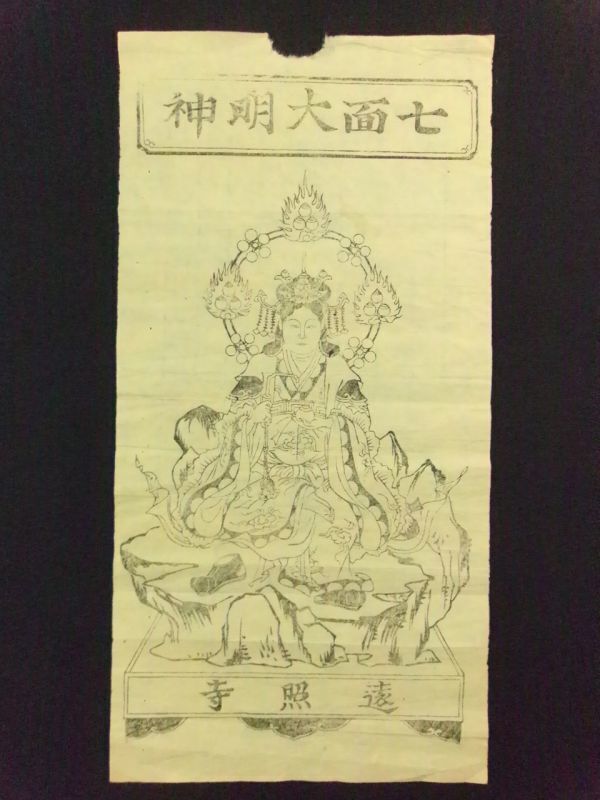 七面大明神
遠照寺